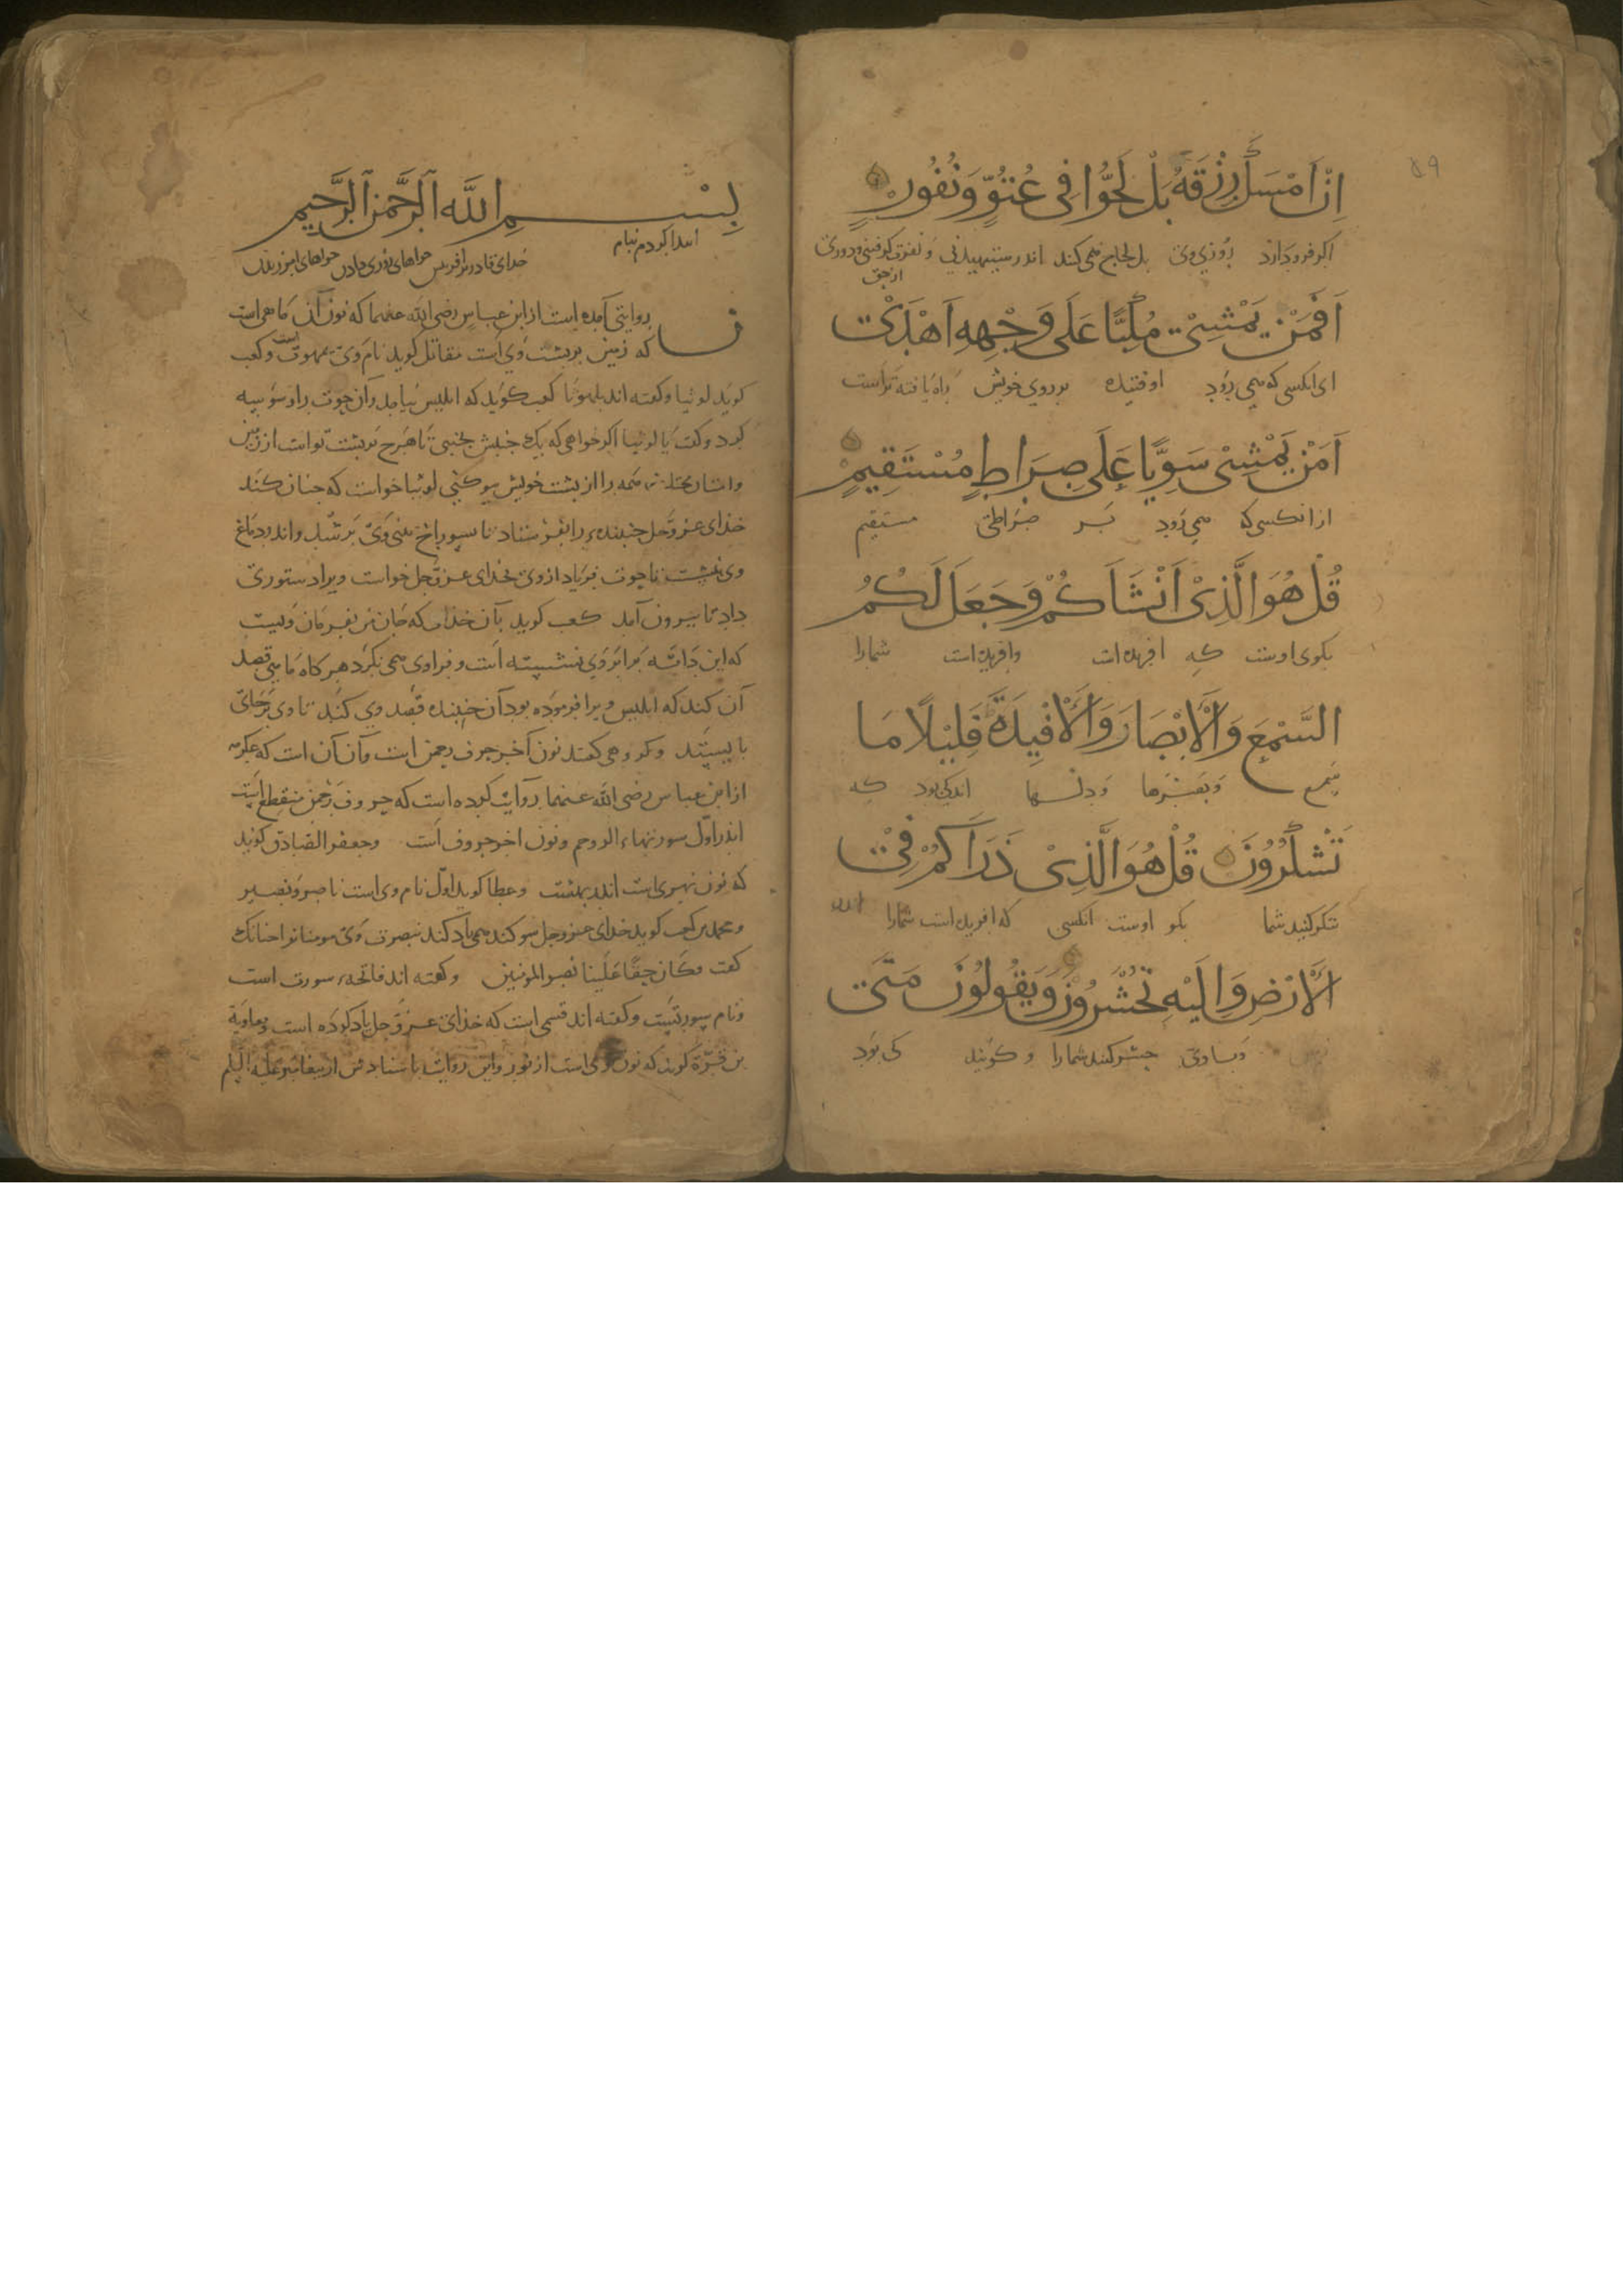 ٥٩
اِنْ اَمْسَكَ رِزْقَهُ بَلْ لَجُّوا فِى عُتُوٍّ وَنُفُورٍ
اكر فرو دارد روزي وى بل لجاج همى كنند اندر ستيهيدنى و نفرت كرفتنى و دورى
از حق
اَفَمَنْ يَمْشِىْ مُكِبًّا عَلَى وَجْهِهِ اَهْدَىْ
اى انكسى كه همى رود اوفتيده بر روي خويش راه يافته تراست
اَمَنْ يَمْشِىْ سَوِيًّا عَلَى صِرَاطٍ مُسْتَقِيمٍ
از انكسى كه همى رود بر صراطى مستقيم
قُلْ هُوَ الَّذِىْ اَنْشَاَكُمْ وَجَعَلَ لَكُمُ
بكوى اوست كه افريده است وافريده است شمارا
السَّمْعَ وَالْاَبْصَارَ وَالْاَفْيِدَةَ قَلِيْلًا مَا
سمع وبصرها ودلها اندكى بود كه
تَشْكُرُوْنَ قُلْ هُوَ الَّذِىْ ذَرَاَكُمْ فِىْ
شكر كنيد شما بكو اوست انكسى كه افريده است شمارا اندر
الْاَرْضِ وَاِلَيْهِ تُحْشَرُوْنَ وَيَقُولُوْنَ مَتَىْ
وبسا وى حشر كنند شمارا و كويند كى بود
بِسْمِ اللَّهِ الرَّحْمٰنِ الرَّحِيمِ
ابتدا كردم بنام
خداى قادر بر افرينش
ن روايتى آمده است از ابن عباس رضى الله عنهما كه نون آن ماهى است
كه زمين بر پشت وي است مقاتل كويد نام وى بهموت است وكعب
كويد لوثيا وكفته اند بلهوثا كعب كويد كه ابليس بيامد و آن حوت را وسوسه
كرد وكفت يا لوثيا اكر خواهى كه يك جنبش بجنبى تا هرچ بر پشت تو است از زمين
همه را از پشت خويش بيوكنى لوثيا خواست كه چنان كند
خداى عز وجل جنبنده را بفرستاد تا سوراخ بينى وى بر شد واندر دماغ
وى نشست تا حوت فرياد از وى بخداى عز وجل خواست ويرا دستورى
داد تا بيرون آمد كعب كويد بآن خداى كه جان من بفرمان ويست
كه اين دابه برابر وى نشسته است و فراوى همى نكرد هر كاه ماهى قصد
آن كند كه ابليس ويرا فرموده بود آن جنبنده قصد وي كند تا وى بر جاى
بايستد وكروهى كفتند نون آخر حرف رحمن است وآن آن است كه عكرمه
از ابن عباس رضى الله عنهما روايت كرده است كه حروف رحمن منقطع است
اندر اول سورتها الر وحم ونون اخر حروف است وجعفر الصادق كويد
كه نون نهرى است اندر بهشت وعطا كويد اول نام وى است ناصر ونصير
ومحمد بن كعب كويد خداى عز وجل سوكند همى ياد كند بنصرت وى مومنانرا چنانك
كفت وكان حقا علينا نصر المومنين وكفته اند فاتحه سورت است
ونام سورتيست وكفته اند قسمى است كه خداى عز وجل ياد كرده است ومعاوية
بن قرة كويد كه نون لوحى است از نور واين روايت باسناد من از پيغامبر عليه السلم